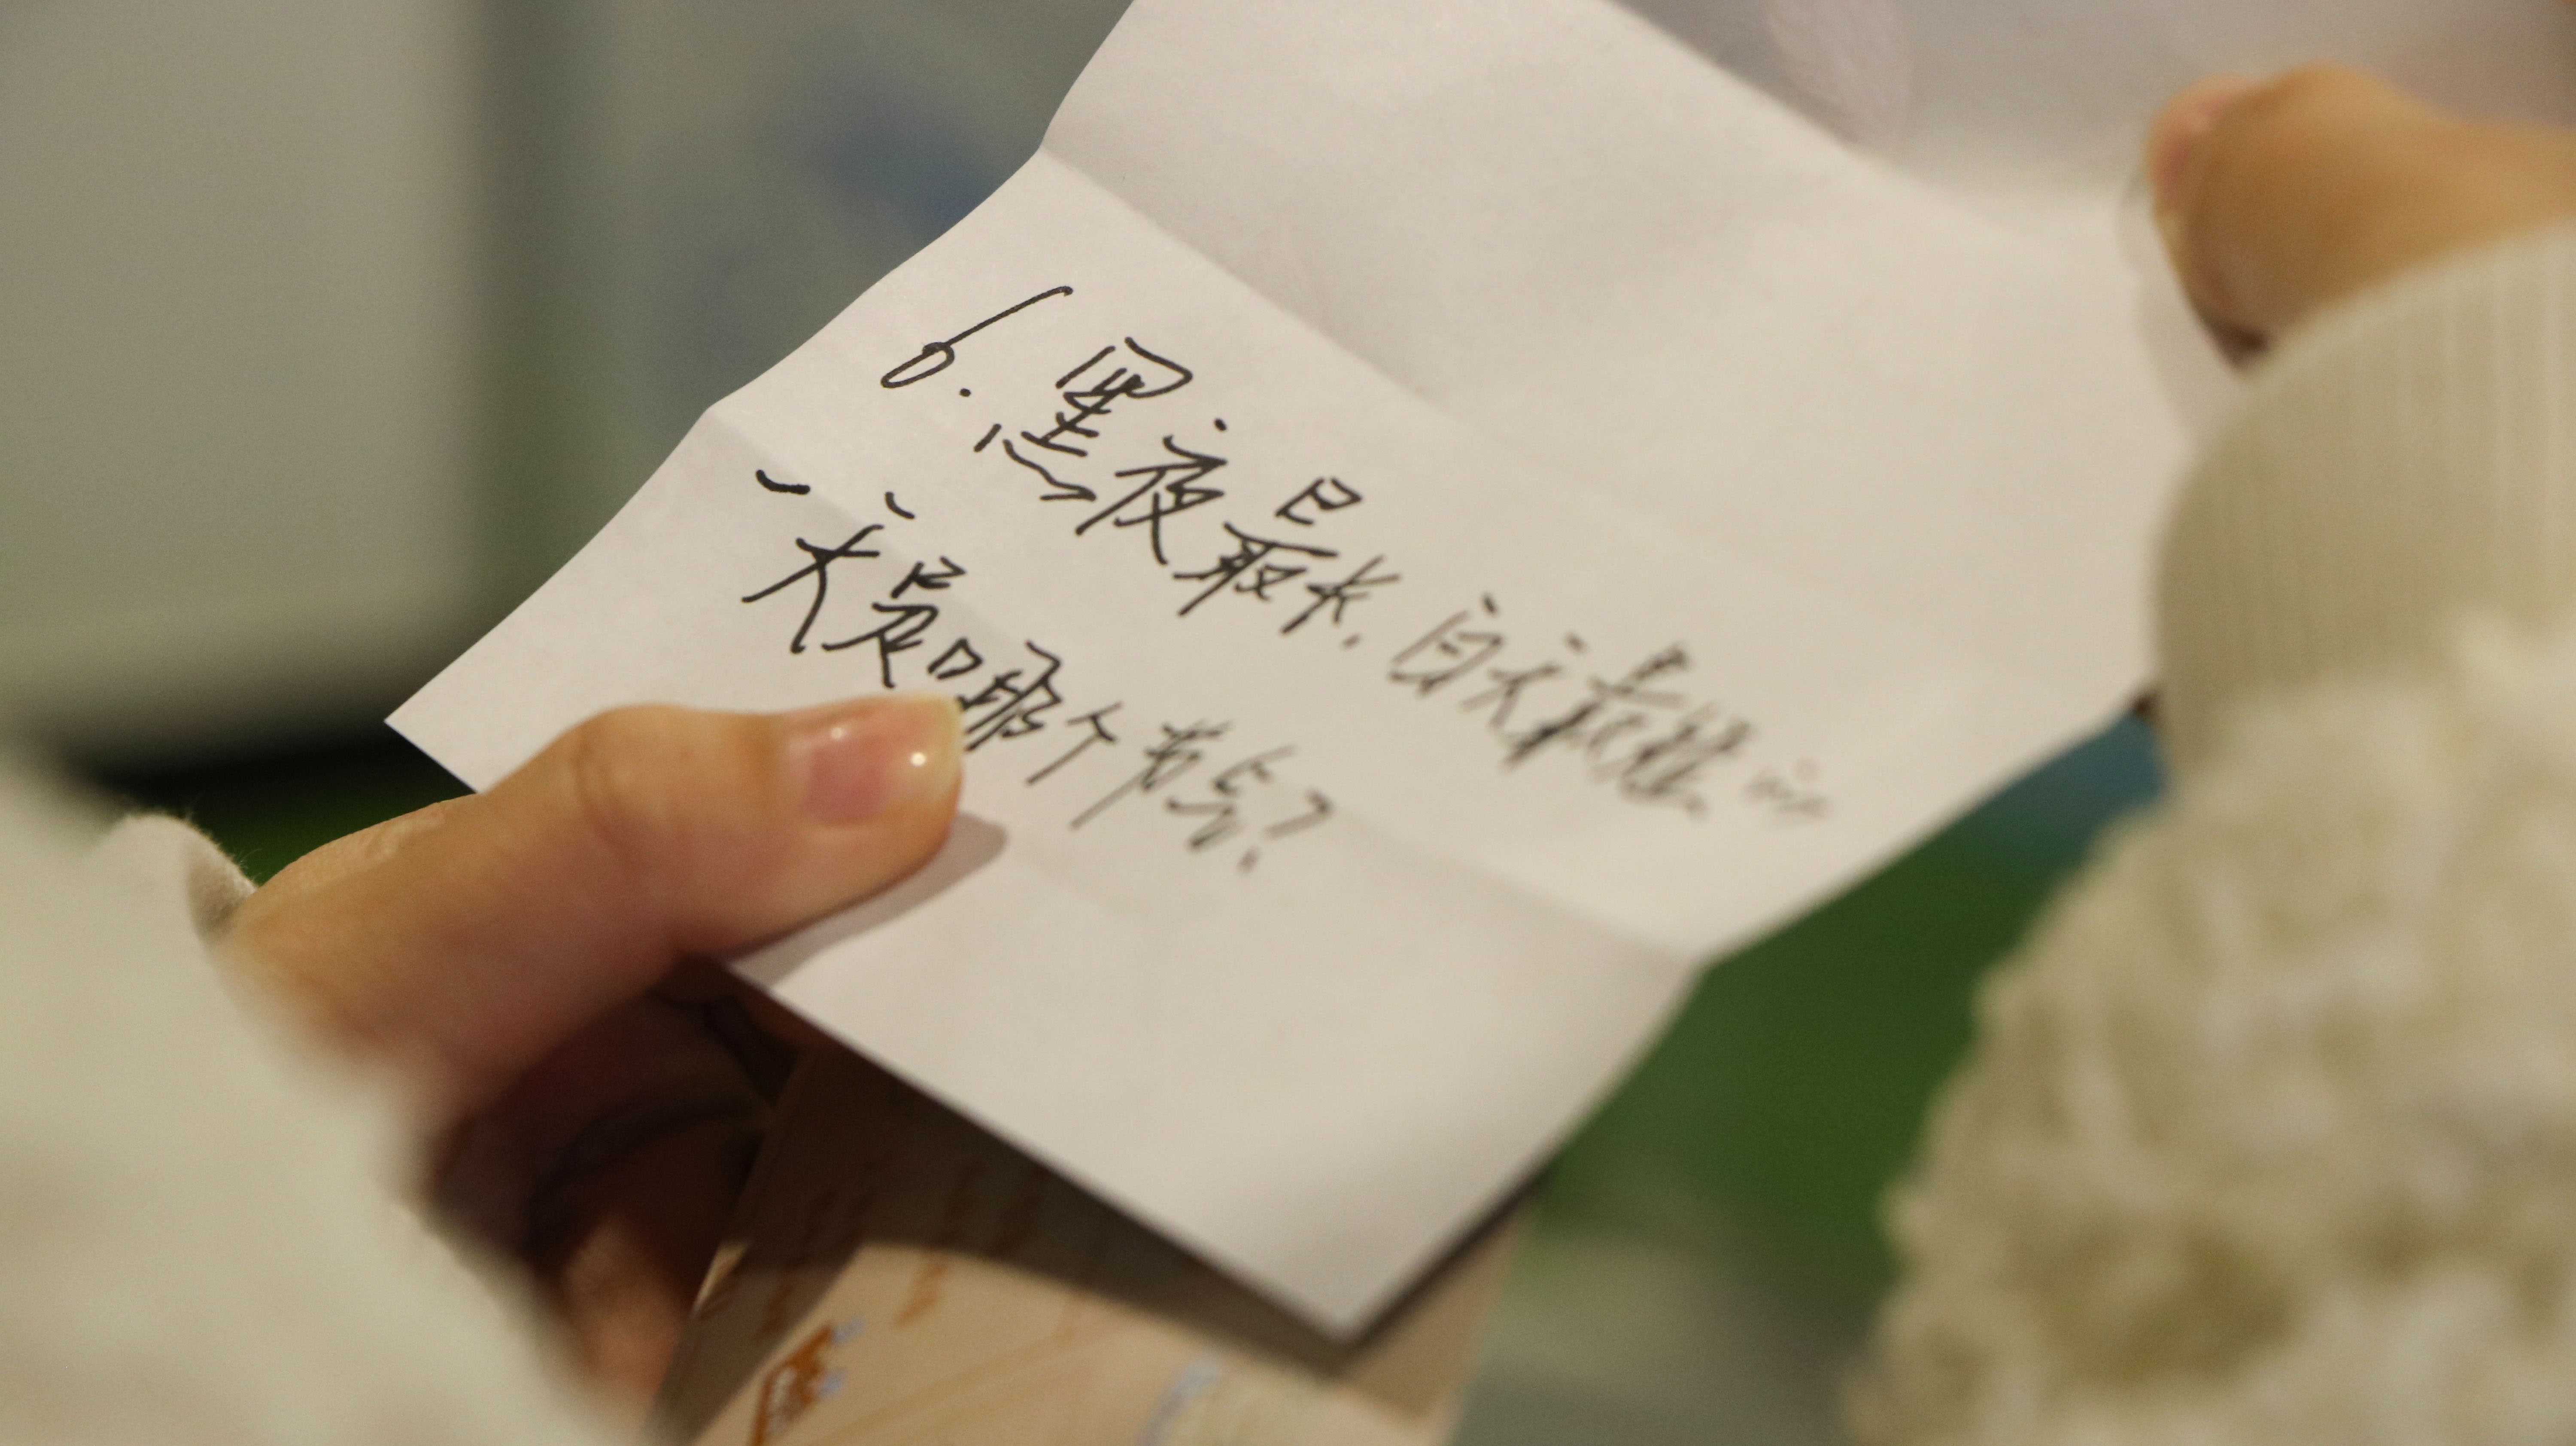 6. 黑夜最长,白天最短的
一天是哪个节气?